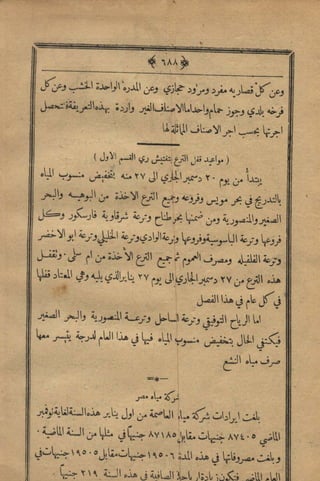 ﴿ ٦٨٨ ﴾
وعن كل قصاريه مفرد ومزود حجازي وعن المدره الواحدة الخشب وعن كل
فرخه بلدي وجوز حمام واحد اما الاصناف الغير واردة بهذه التعريفة فتحصل
اجرتها بحسب اجر الاصناف المماثلة لها
( مواعيد قفل الترع بتفتيش ري القسم الأول )
يبتدأ من يوم ٢٠ دسمبر الجاري الى ٢٧ منه بتخفيض منسوب المياه
بالتدريج في بحر مويس وفروعه وجميع الترع الاخذة من البوهيه والبحر
الصغير والمنصورية ومن ضمنها بحر طناح وترعة شرقاوية فارسكور وكل
فروعها وترعة الباسوسية وفروعها وترعة الوادي وترعة الخليلي وترعة ابو الاخضر
وترعة القلفيله ومصرف العموم ثم جميع الترع الآخذة من ام سلى . وتقفل
هذه الترع من ٢٧ دسمبر الجاري الى يوم ٢٧ يناير الذي يليه وهي المعتاد قفلها
في كل عام في هذا الفصل
اما الرياح التوفيقي وترعة الساحل وترعة المنصورية والبحر الصغير
فيكتفي الحال بتخفيض منسوب المياه فيها في هذا العام لدرجة يتيسر معها
صرف مياه النشع
شركة مياه مصر
بلغت ايرادات شركة مياه العاصمة من اول يناير هذه السنة لغاية نوفمبر
الماضي ٨٧٤٠٥ جنيهات مقابل ٨٧١٨٥ جنيهاً في مثلها من السنة الماضية .
وبلغت مصروفاتها في هذه المدة ١٩٥٠٦ جنيهات مقابل ١٩٥٠٥ جنيهات في
العام الماضي فتكون زيادة ارباحها الصافية في هذه السنة ٢١٩ جنيهاً .